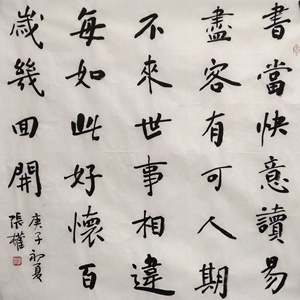 書當快意讀易
盡客有可人期
不來世事相違
每如此好懷百
歲幾回開
庚子初夏
張權